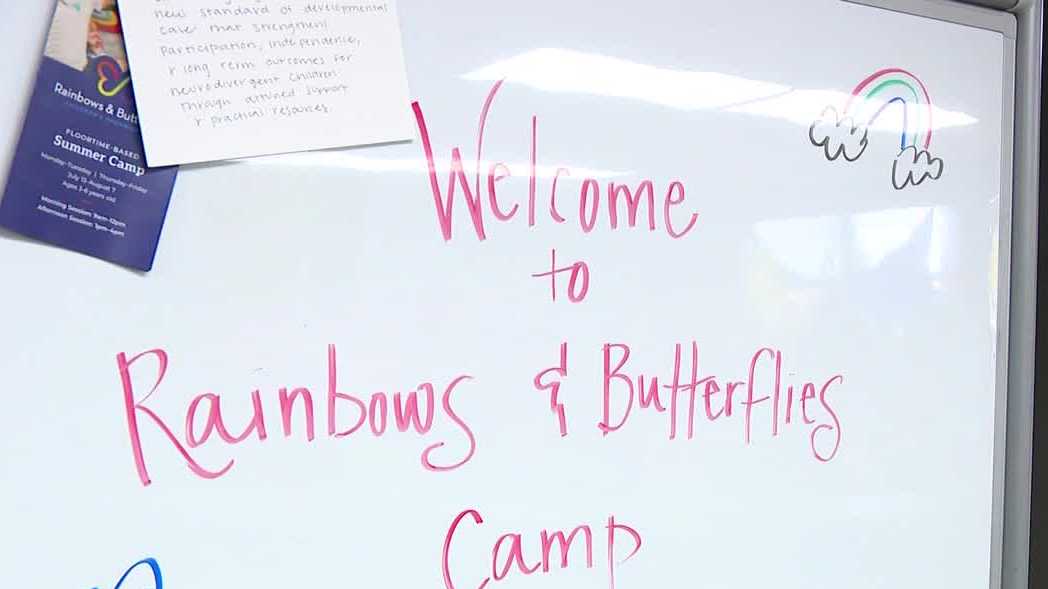 new standard of developmental
care that strengthens
participation, independence,
& long term outcomes for
neurodivergent children
through attuned support
& practical resources.
Rainbows & Butt
FLOORTIME-BASED
Summer Camp
Monday-Tuesday | Thursday-Friday
July 13-August 7
Ages 3-6 years old
Morning Session 9am-12pm
Afternoon Session 1pm-4pm
Welcome
to
Rainbows & Butterflies
Camp